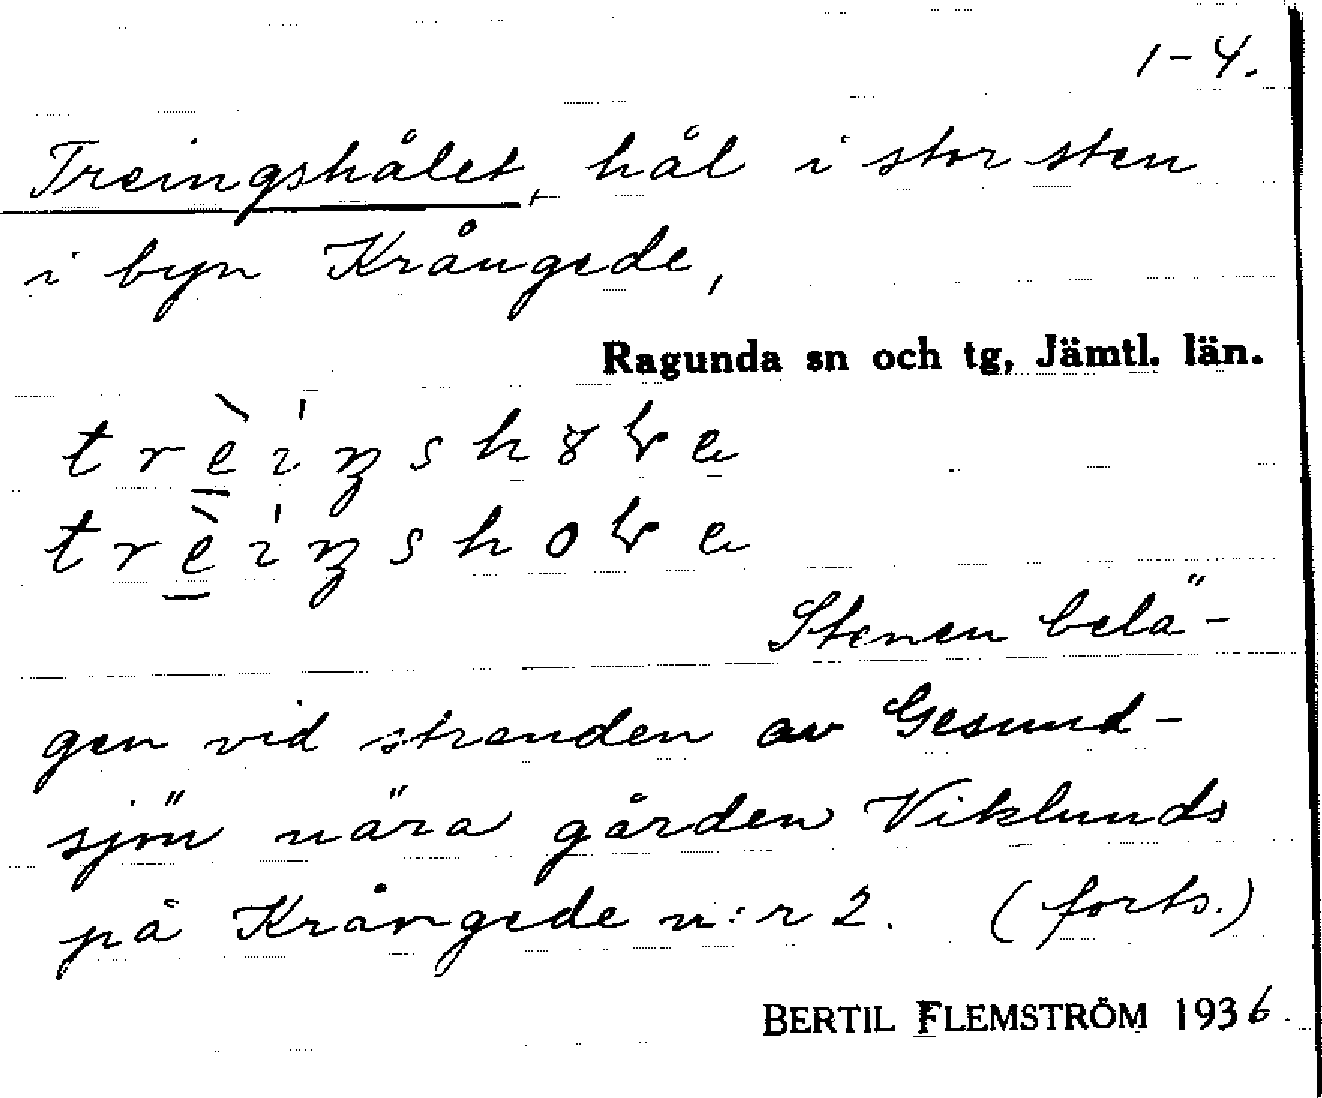 1-4.
Treingshålet, hål i stor sten
i byn Krångede,
Ragunda sn och tg, Jämtl. län.
Stenen belä-
gen vid stranden av Gesund-
sjön nära gården Viklunds
på Krångede n:r 2. (forts.)
BERTIL FLEMSTRÖM 1936